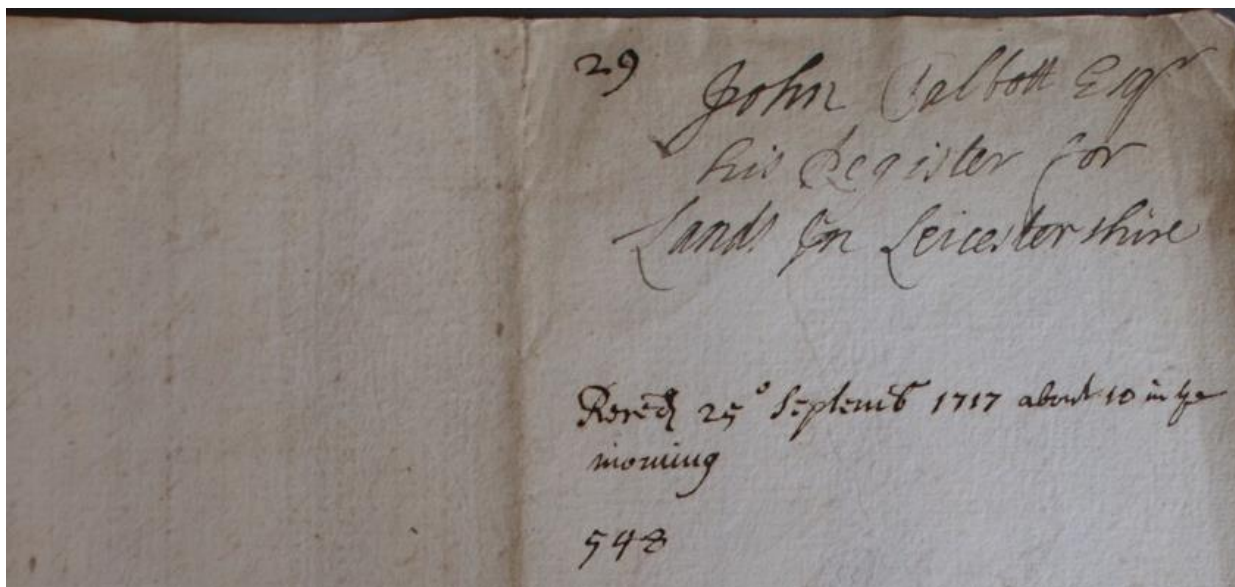 29
John Talbott Esqr
his Register for
Lands In Leicestershire
Reced 25o Septemb 1717 about 10 in ye
morning
548